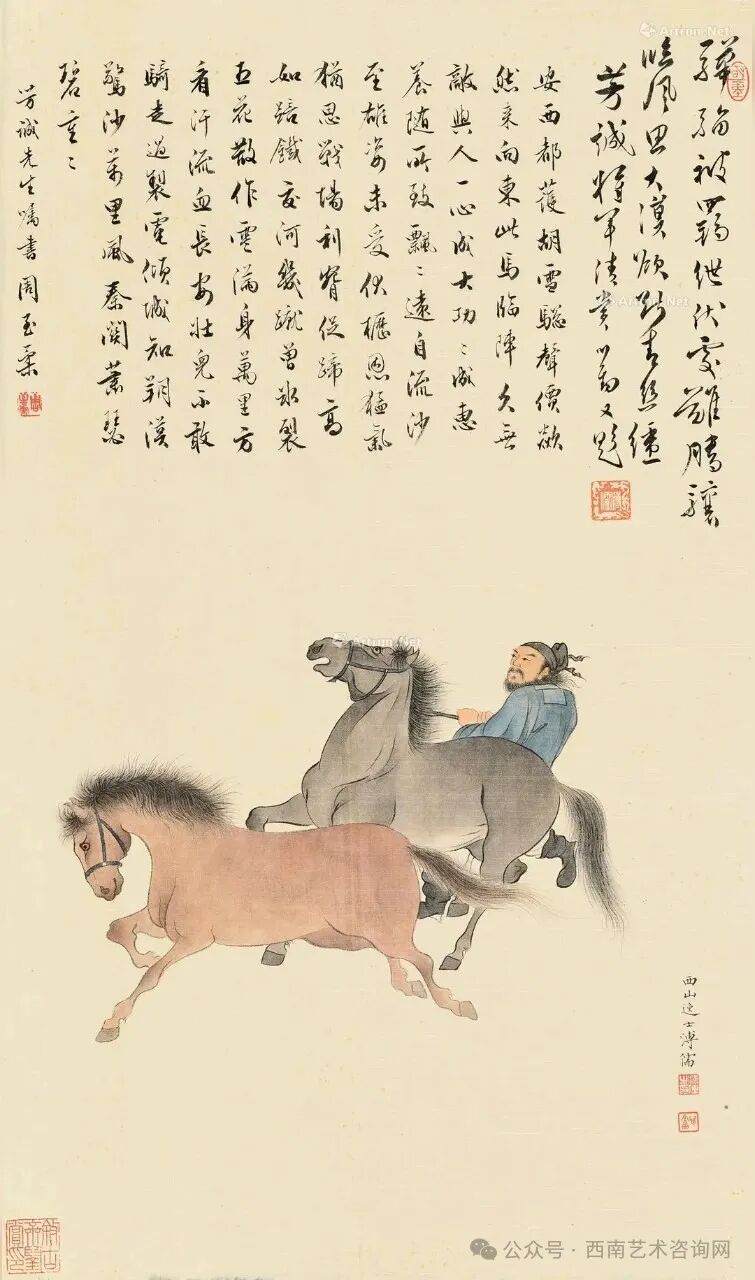 驊騮被羈紲伏處難騰驤
臨風思大漠欲斷青絲繮
芳誠將軍清賞 心畬又題
安西都護胡雪驄聲價欻
然來向東此馬臨陣久無
敵與人一心成大功〻成惠
養隨所致飄〻遠自流沙
至雄姿未受伏櫪恩猛氣
猶思戰場利腕促蹄高
如踣鐵交河幾蹴曾冰裂
五花散作雲滿身萬里方
看汗流血長安壯兒不敢
騎走過掣電傾城知朔漠
驚沙萬里風秦關蕭瑟
碧重〻
芳誠先生囑書 周至柔
西山逸士溥儒
Artron.Net
Artron.Net
Artron.Net
公众号·西南艺术咨询网